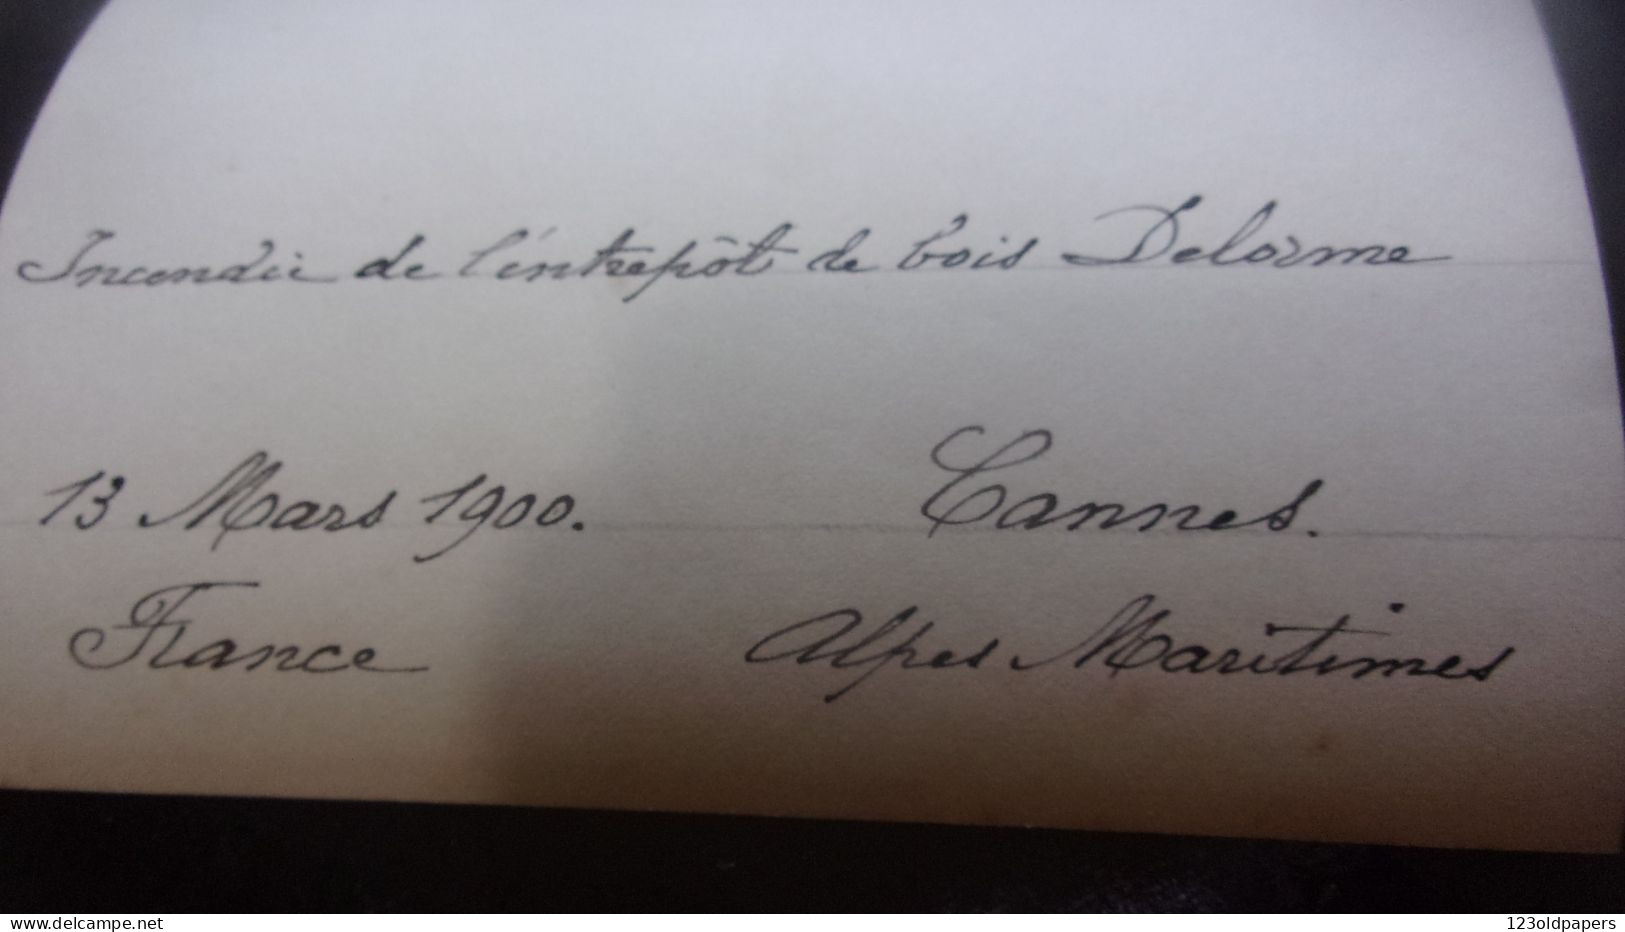 Incendie de l'éntrepôt de bois Delorme
13 Mars 1900. Cannes.
France Alpes Maritimes
www.delcampe.net 123oldpapers